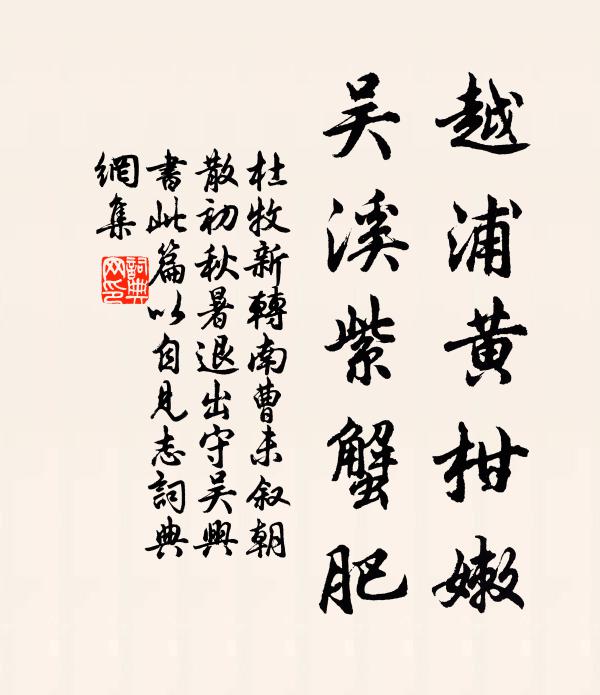 越浦黄柑嫩
吴溪紫蟹肥
杜牧新轉南曹未叙朝
散初秋暑退出守吴興
書此篇以自見志詞典
網集
詞典
网印